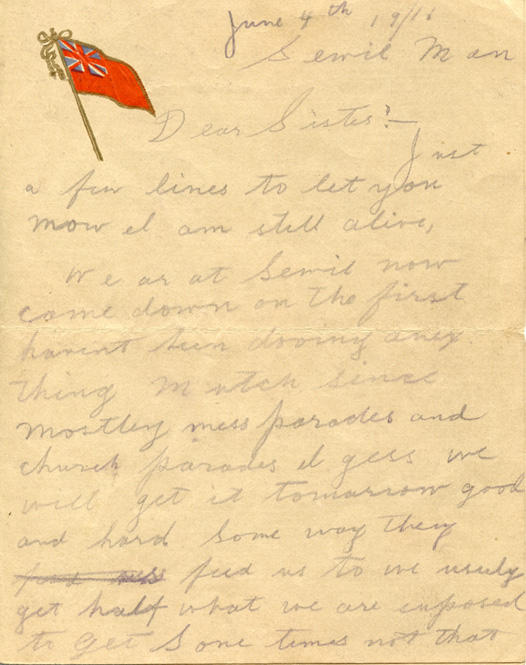 June 4th 1916
Sewil Man
Dear Sister:—
Just
a few lines to let you
know I am still alive,
We ar at Sewil now
come down on the first
havent been dooing aney
thing Mutch since
mostley mess parades and
church parades I gess we
will get it tomarrow good
and hard some way they
feed us to we usuly
get half what we are exposed
to get Some times not that